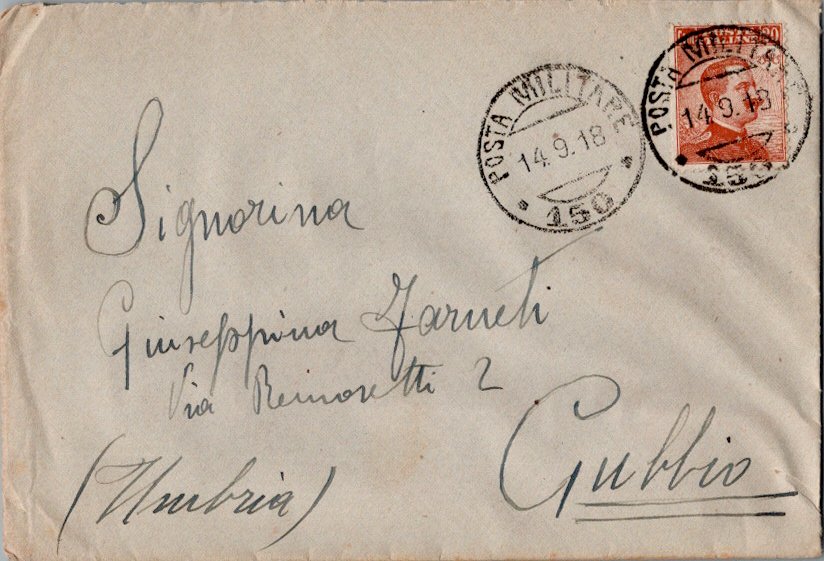 POSTA MILITARE
14.9.18
150
20
POSTA MILITARE
14.9.18
150
Signorina
Giuseppina
Via 2
Gubbio
(Umbria)